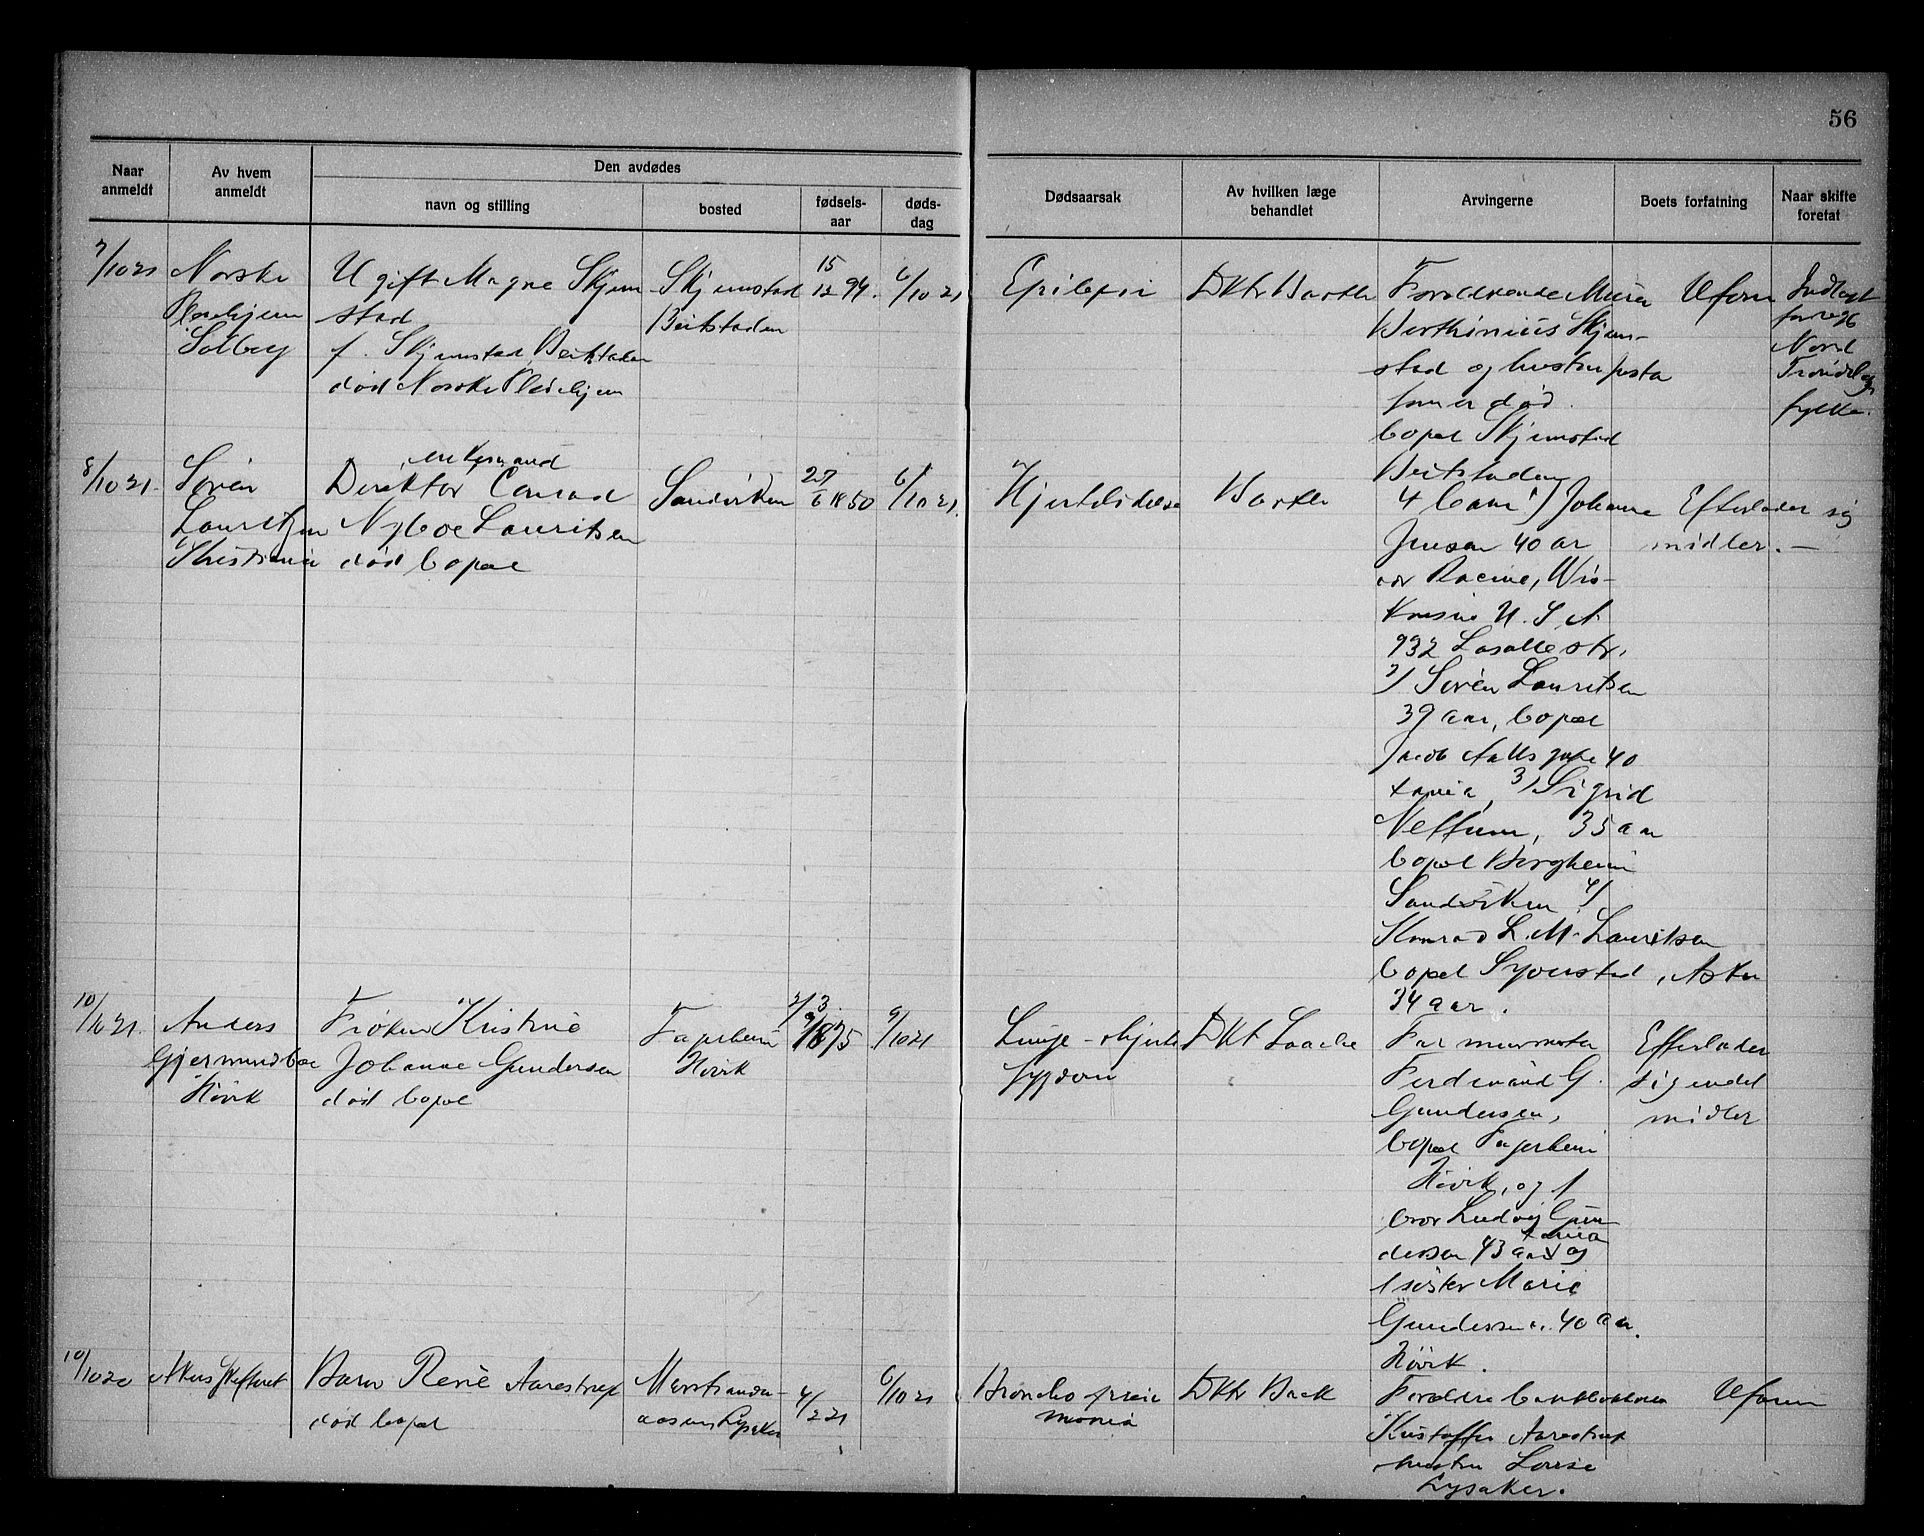 56
Naar anmeldt
Av hvem anmeldt
Den avdødes
navn og stilling
bosted
fødsels-aar
døds-dag
Dødsaarsak
Av hvilken læge behandlet
Arvingerne
Boets forfatning
Naar skifte foretat
7/10 21
Norske
Pleiehjem
Solberg
Ugift Magne Skjem
stad
f. Skjemstad, Beitstaden
død Norske Pleiehjem
Skjemstad
Beitstaden
15
12 94.
6/10 21
Epilepsi
Dktr Barth
Berthinius Skjem-
stad og hustru
som er død.
bopæl Skjemstad
Beitstaden
Uform
Indlagt
Nord
Trøndelags
fylke.
8/10 21.
Søren
Lauritzen
Kristiania
enkemand
Direktør Conrad
Nyboe Lauritsen
død bopæl
Sandviken
27
6 1850
6/10 21.
Hjertelidelse
Barth
4 barn 1) Johanne
Jensen 40 ar
adr Racine, Wis-
konsin U. S. A
932 Lasalle str.
2) Søren Lauritsen
39 aar, bopæl
Jacob Aalls gate 40
x ania, 3) Sigrid
35 aar
bopæl Bergheim
Sandviken 4)
Konrad L. M. Lauritsen
bopæl Syverstad, Asker
34 aar.
Efterlader sig
midler. —
10/10 21.
Anders
Gjermundboe
Høvik
Frøken Kristine
Johanne Gundersen
død bopæl
Fagerheim
Høvik
1875
9/10 21
Lunge- hjerte
sygdom
Dkt Laache
Far murmester
Ferdinand G.
Gundersen,
bopæl Fagerheim
Høvik, og 1
bror Ludvig Gun
x ania
dersen 43 aar og
1 søster Marie
Gundersen 40 aar.
Høvik.
Efterlader
sig endel
midler
10/10 20
Barn René Aarestrup
død bopæl
Lysaker
4/2 21
6/10 21
Broncho pneu
monia
Dktr Back
Forældre
Kristoffer Aarestrup
hustru Louise
Lysaker.
Uform